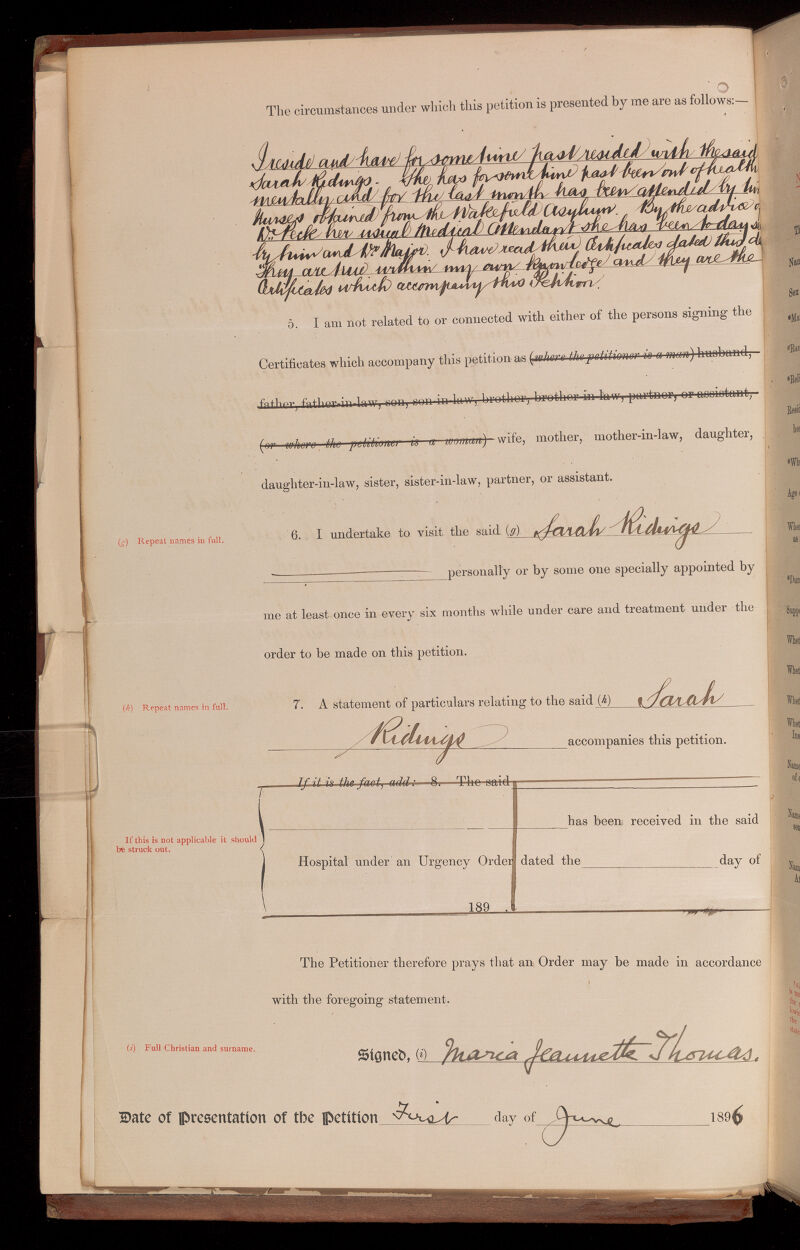 The circumstances under which this petition is presented by me are as follows:—
I reside and have for some time past resided with the said
Sarah Ridings. She has for some time past been out of health
mentally and for the last month has been attended by
Nurses obtained from the Wakefield Asylum. By the advice
Dr Peck her usual Medical Attendant she has been to-day
by him and Dr Major. I have read their Certificates dated this
They are true within my own knowledge and they are the
Certificates which accompany this Petition.
5. I am not related to or connected with either of the persons signing the
Certificates which accompany this petition as (where the petitioner is a man) husband,
father, father-in-law, son, son-in-law, brother, brother-in-law, partner, or assistant,
(or where the petitioner is a woman) wife, mother, mother-in-law, daughter,
daughter-in-law, sister, sister-in-law, partner, or assistant.
(g) Repeat names in full.
6. I undertake to visit the said (g) Sarah Ridings
personally or by some one specially appointed by
me at least once in every six months while under care and treatment under the
order to be made on this petition.
(h) Repeat names in full.
7. A statement of particulars relating to the said (h) Sarah
Ridings accompanies this petition.
If it is the fact, add: 8. The said
has been received in the said
If this is not applicable it should
be struck out.
Hospital under an Urgency Order dated the day of
189 .
The Petitioner therefore prays that an Order may be made in accordance
with the foregoing statement.
(i) Full Christian and surname.
Signed, (i) Maria Jeannette Thomas.
Date of Presentation of the Petition First day of June 1896